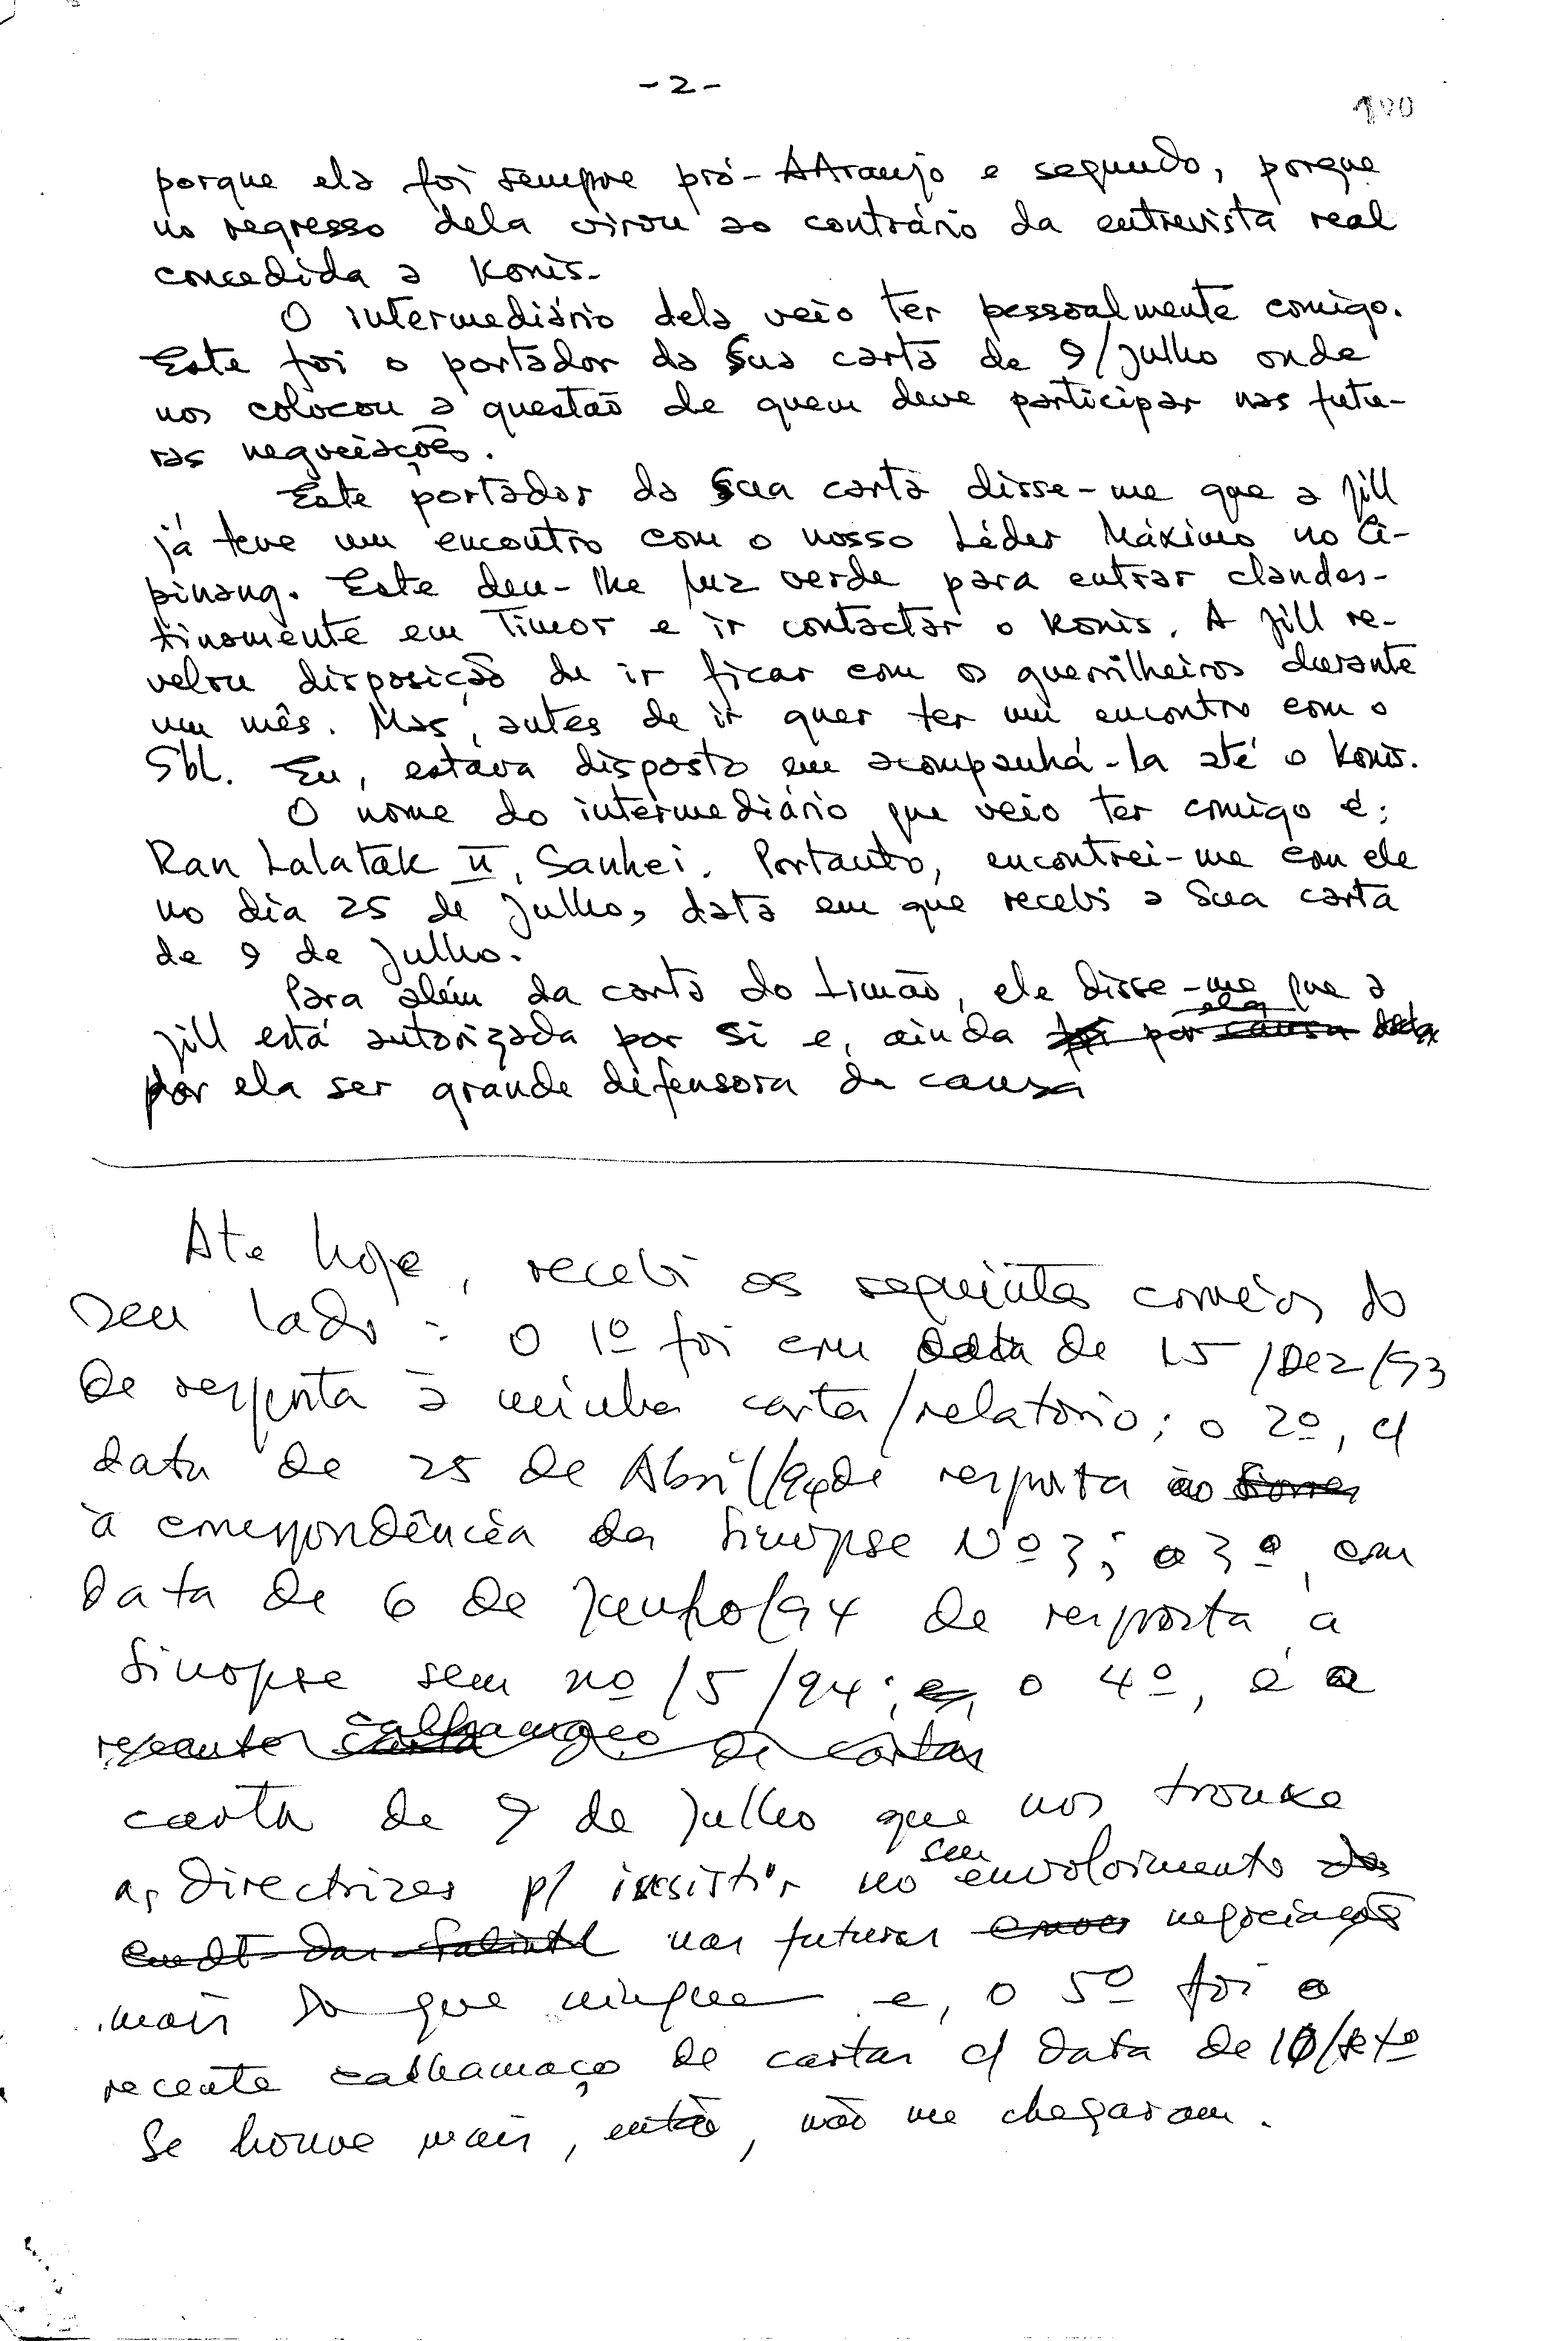 -2-
190
porque ela foi sempre pró-AAraujo e segundo, porque
no regresso dela virou ao contrário da entrevista real
concedida a Konis.
O intermediário dela veio ter pessoalmente comigo.
Este foi o portador da Sua carta de 9/Julho onde
nos colocou a questão de quem deve participar nas futu-
ras negociações.
Este portador da Sua carta disse-me que a Jill
já teve um encontro com o nosso Líder Máximo no Ci-
pinang. Este deu-lhe luz verde para entrar clandes-
tinamente em Timor e ir contactar o Konis. A Jill re-
velou disposição de ir ficar com os guerrilheiros durante
um mês. Mas, antes de ir quer ter um encontro com o
Sbl. Eu, estava disposto em acompanhá-la até o Konis.
O nome do intermediário que veio ter comigo é:
Ran Lalatak II, Sanhei. Portanto, encontrei-me com ele
no dia 25 de Julho, data em que recebi a Sua carta
de 9 de Julho.
Para além da carta do Limão, ele disse-me que a
ela
Jill está autorizada por si e, ainda por causa dela
por ela ser grande defensora da causa
Ate hoje, recebi os seguintes correios do
seu lado: o 1º foi em data de 15/Dez/93
de resposta à minha carta/relatorio; o 2º, c/
data de 25 de Abril/94 de resposta ao
à correspondência da Sinopse Nº 3; o 3º, em
data de 6 de Junho/94 de resposta à
Sinopse sem nº /5/94; e, o 4º, é a
recente calhamaço de cartas
carta de 9 de Julho que nos trouxe
as directrizes p/ insistir no seu envolvimento da
nas futuras negociações
mais do que ninguem e, o 5º foi o
recente calhamaço de cartas c/ data de 10/Setº
Se houve mais, então, não me chegaram.